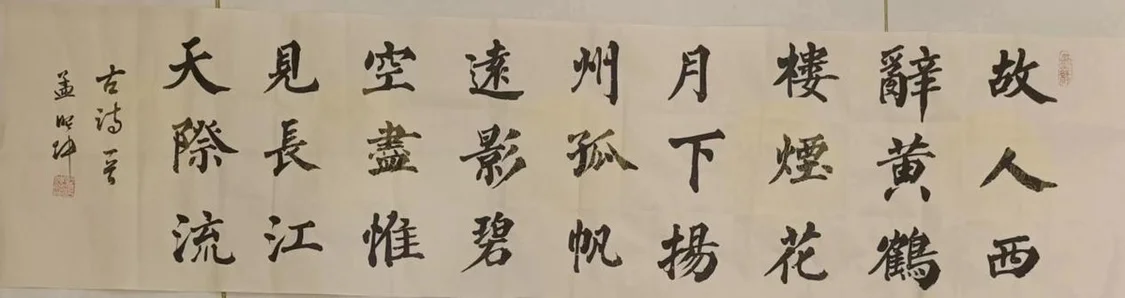 故人西
辭黄鶴
樓煙花
月下揚
州孤帆
遠影碧
空盡惟
見長江
天際流
古詩一首
孟昭